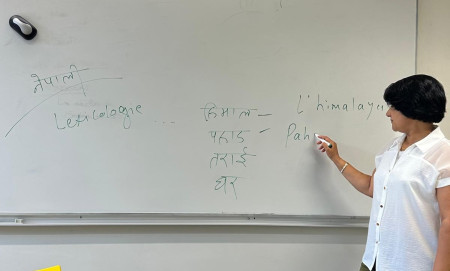 नेपाली
Lexicologie
हिमाल – l'himalaya
पहाड – Pah
तराई
घर